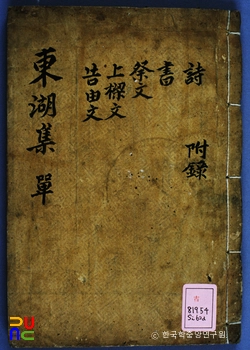 詩 附錄
書
祭文
上樑文
告由文
東湖集 單
復
81954
© 한국학중앙연구원